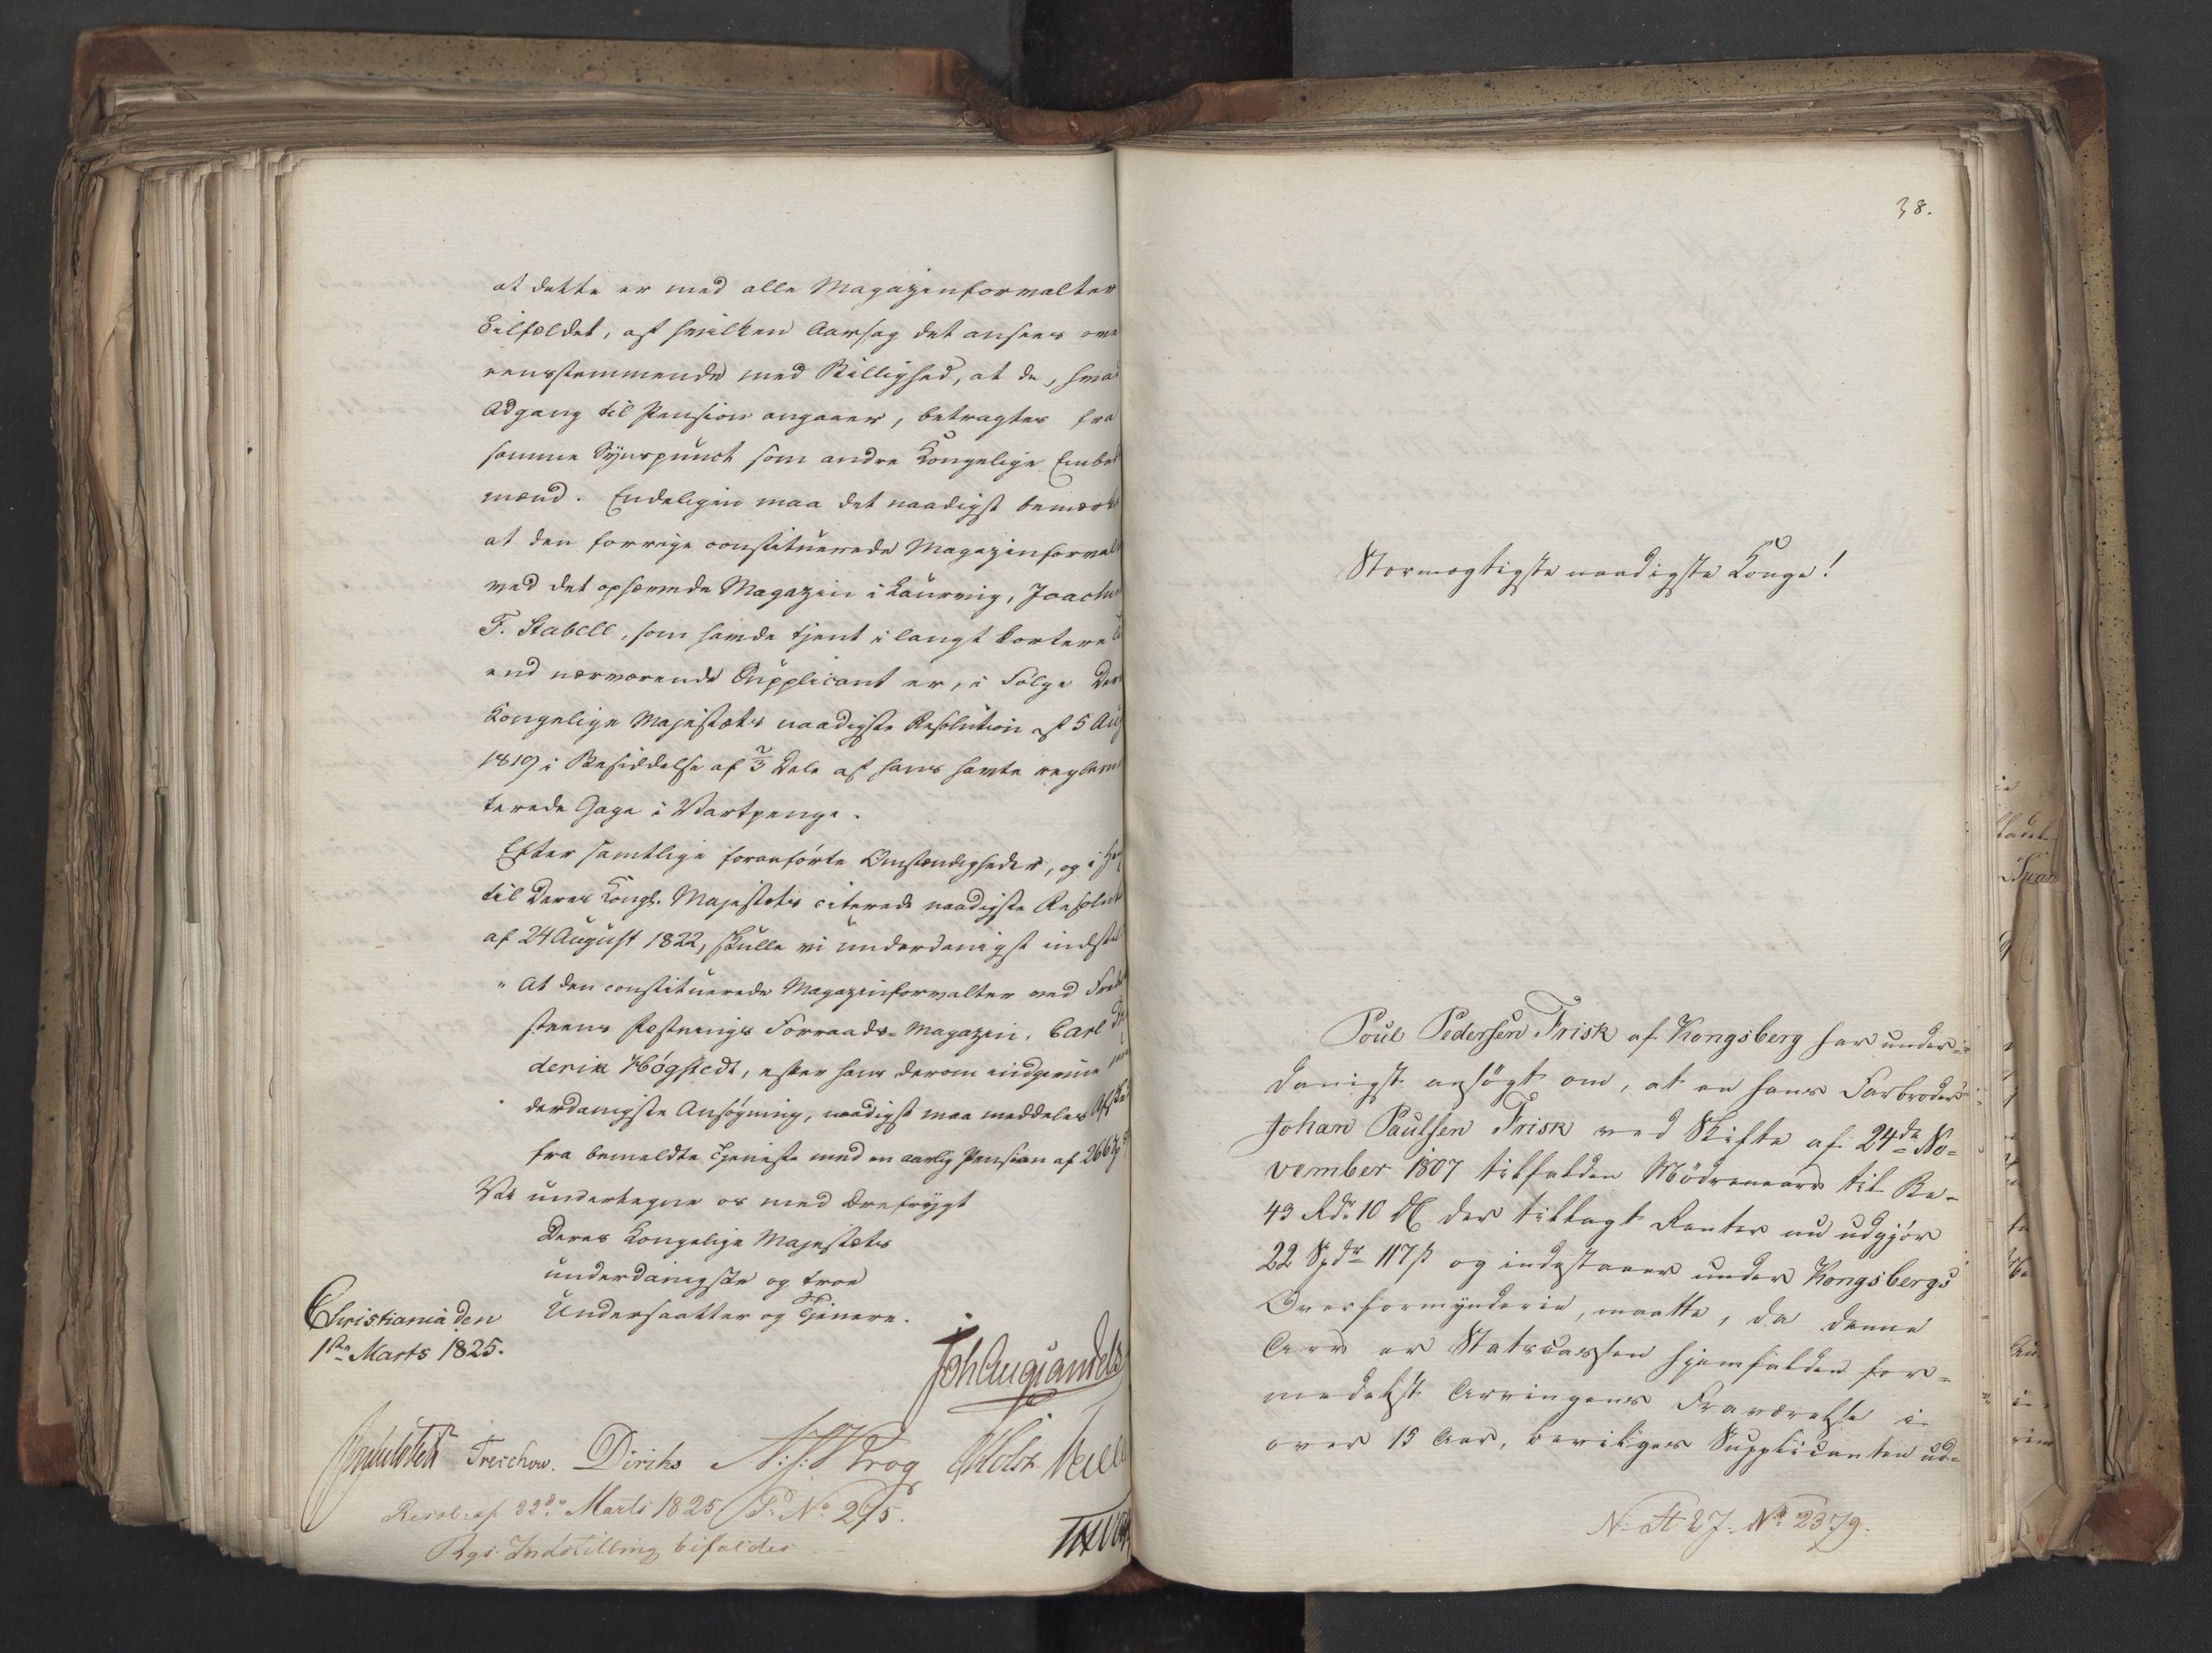 at dette er med alle Magazinforvalter
Tilfældet, af hvilken Aarsag det ansees ove
eensstemmende med Billighed, at de, hvad
Adgang til Pension angaaer, betragtes fra
samme Synspunct som andre Kongelige Embed
mænd. Endeligen maa det naadigst bemærkes
at den forrige constituerede Magazinforval
ved det ophævede Magazin i Laurvig, Joachim
F. Stabell, som havde tjent i langt kortere
end nærværende Supplicant er, i Følge Deres
Kongelige Majestæts naadigste Resolution af 5 Aug
1819 i Besiddelse af 2/3 Dele af hans havte reglem
terede Gage i Vartpenge.
Efter samtlige foranførte Omstændigheder, og i Hen
til Deres Kongl. Majestæts citerede naadigste Resolut
af 24 August 1822, skulle vi underdanigst indstil
" At den constituerede Magazinforvalter ved Fred
steens Fæstnings Forraads-Magazin, Carl Fri
derik Høgstedt, efter hans derom indgivne un
derdanigste Ansøgning, naadigst maa meddeles Afske
fra bemeldte Tjeneste med en aarlig Pension af 266
Vi undertegne os med Ærefrygt
Deres Kongelige Majestæts
underdanigste og troe
Undersaatter og Tjenere.
Christiania den
1ste Marts 1825.
Joh Aug Sandels
Treschow. Diriks Krog Holst
Resol: af 22de Marts 1825 P. No 295.
Rgs Indstilling bifaldes
38.
Stormægtigste naadigste Konge!
Poul Pedersen Frisk af Kongsberg har under=
danigst ansøgt om, at en hans Farbroder
Johan Paulsen Frisk ved Skifte af 24de No=
vember 1807 tilfalden Mødrenearv til Be=
43 Rdr 10 ß der tillagt Renter nu udgjør
22 Spdr 117 ß og indestaaer under Kongsbergs
Overformynderie, maatte, da denne
Arv er Statscassen hjemfalden for=
medelst Arvingens Fraværelse i
over 15 Aar, bevilges Supplicanten ud=
No 2379.